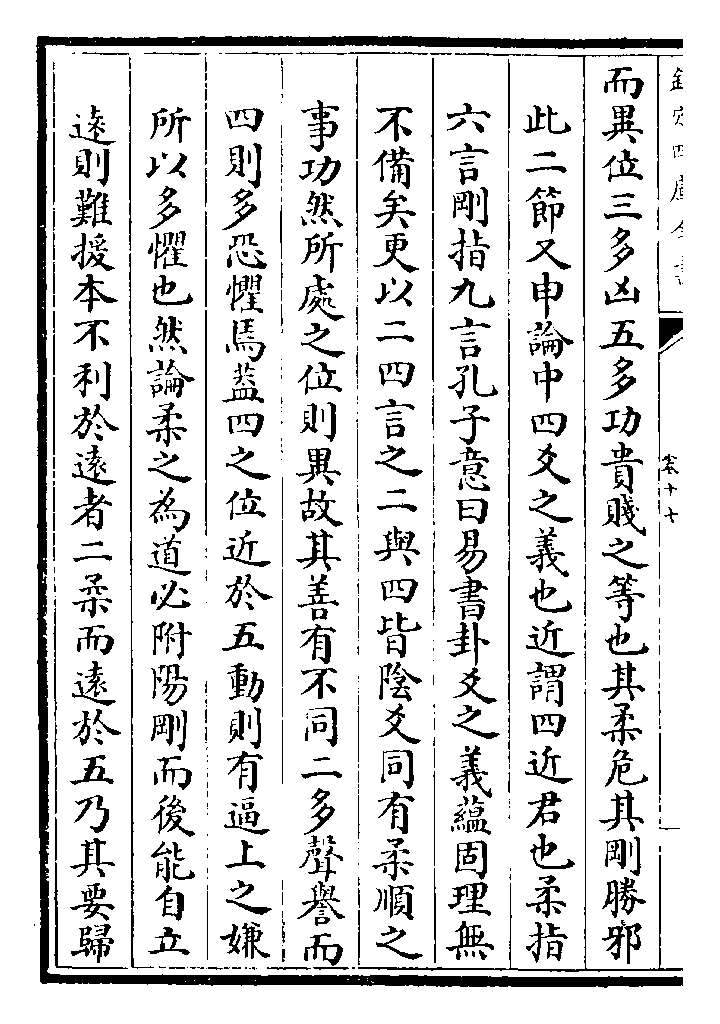 欽定四庫全書
卷十七
而異位三多凶五多功貴賤之等也其柔危其剛勝邪
此二節又申論中四爻之義也近謂四近君也柔指
六言剛指九言孔子意曰易書卦爻之義蘊固理無
不備矣更以二四言之二與四皆陰爻同有柔順之
事功然所處之位則異故其善有不同二多聲譽而
四則多恐懼焉葢四之位近於五動則有逼上之嫌
所以多懼也然論柔之為道必附陽剛而後能自立
遠則難援本不利於遠者二柔而遠於五乃其要歸